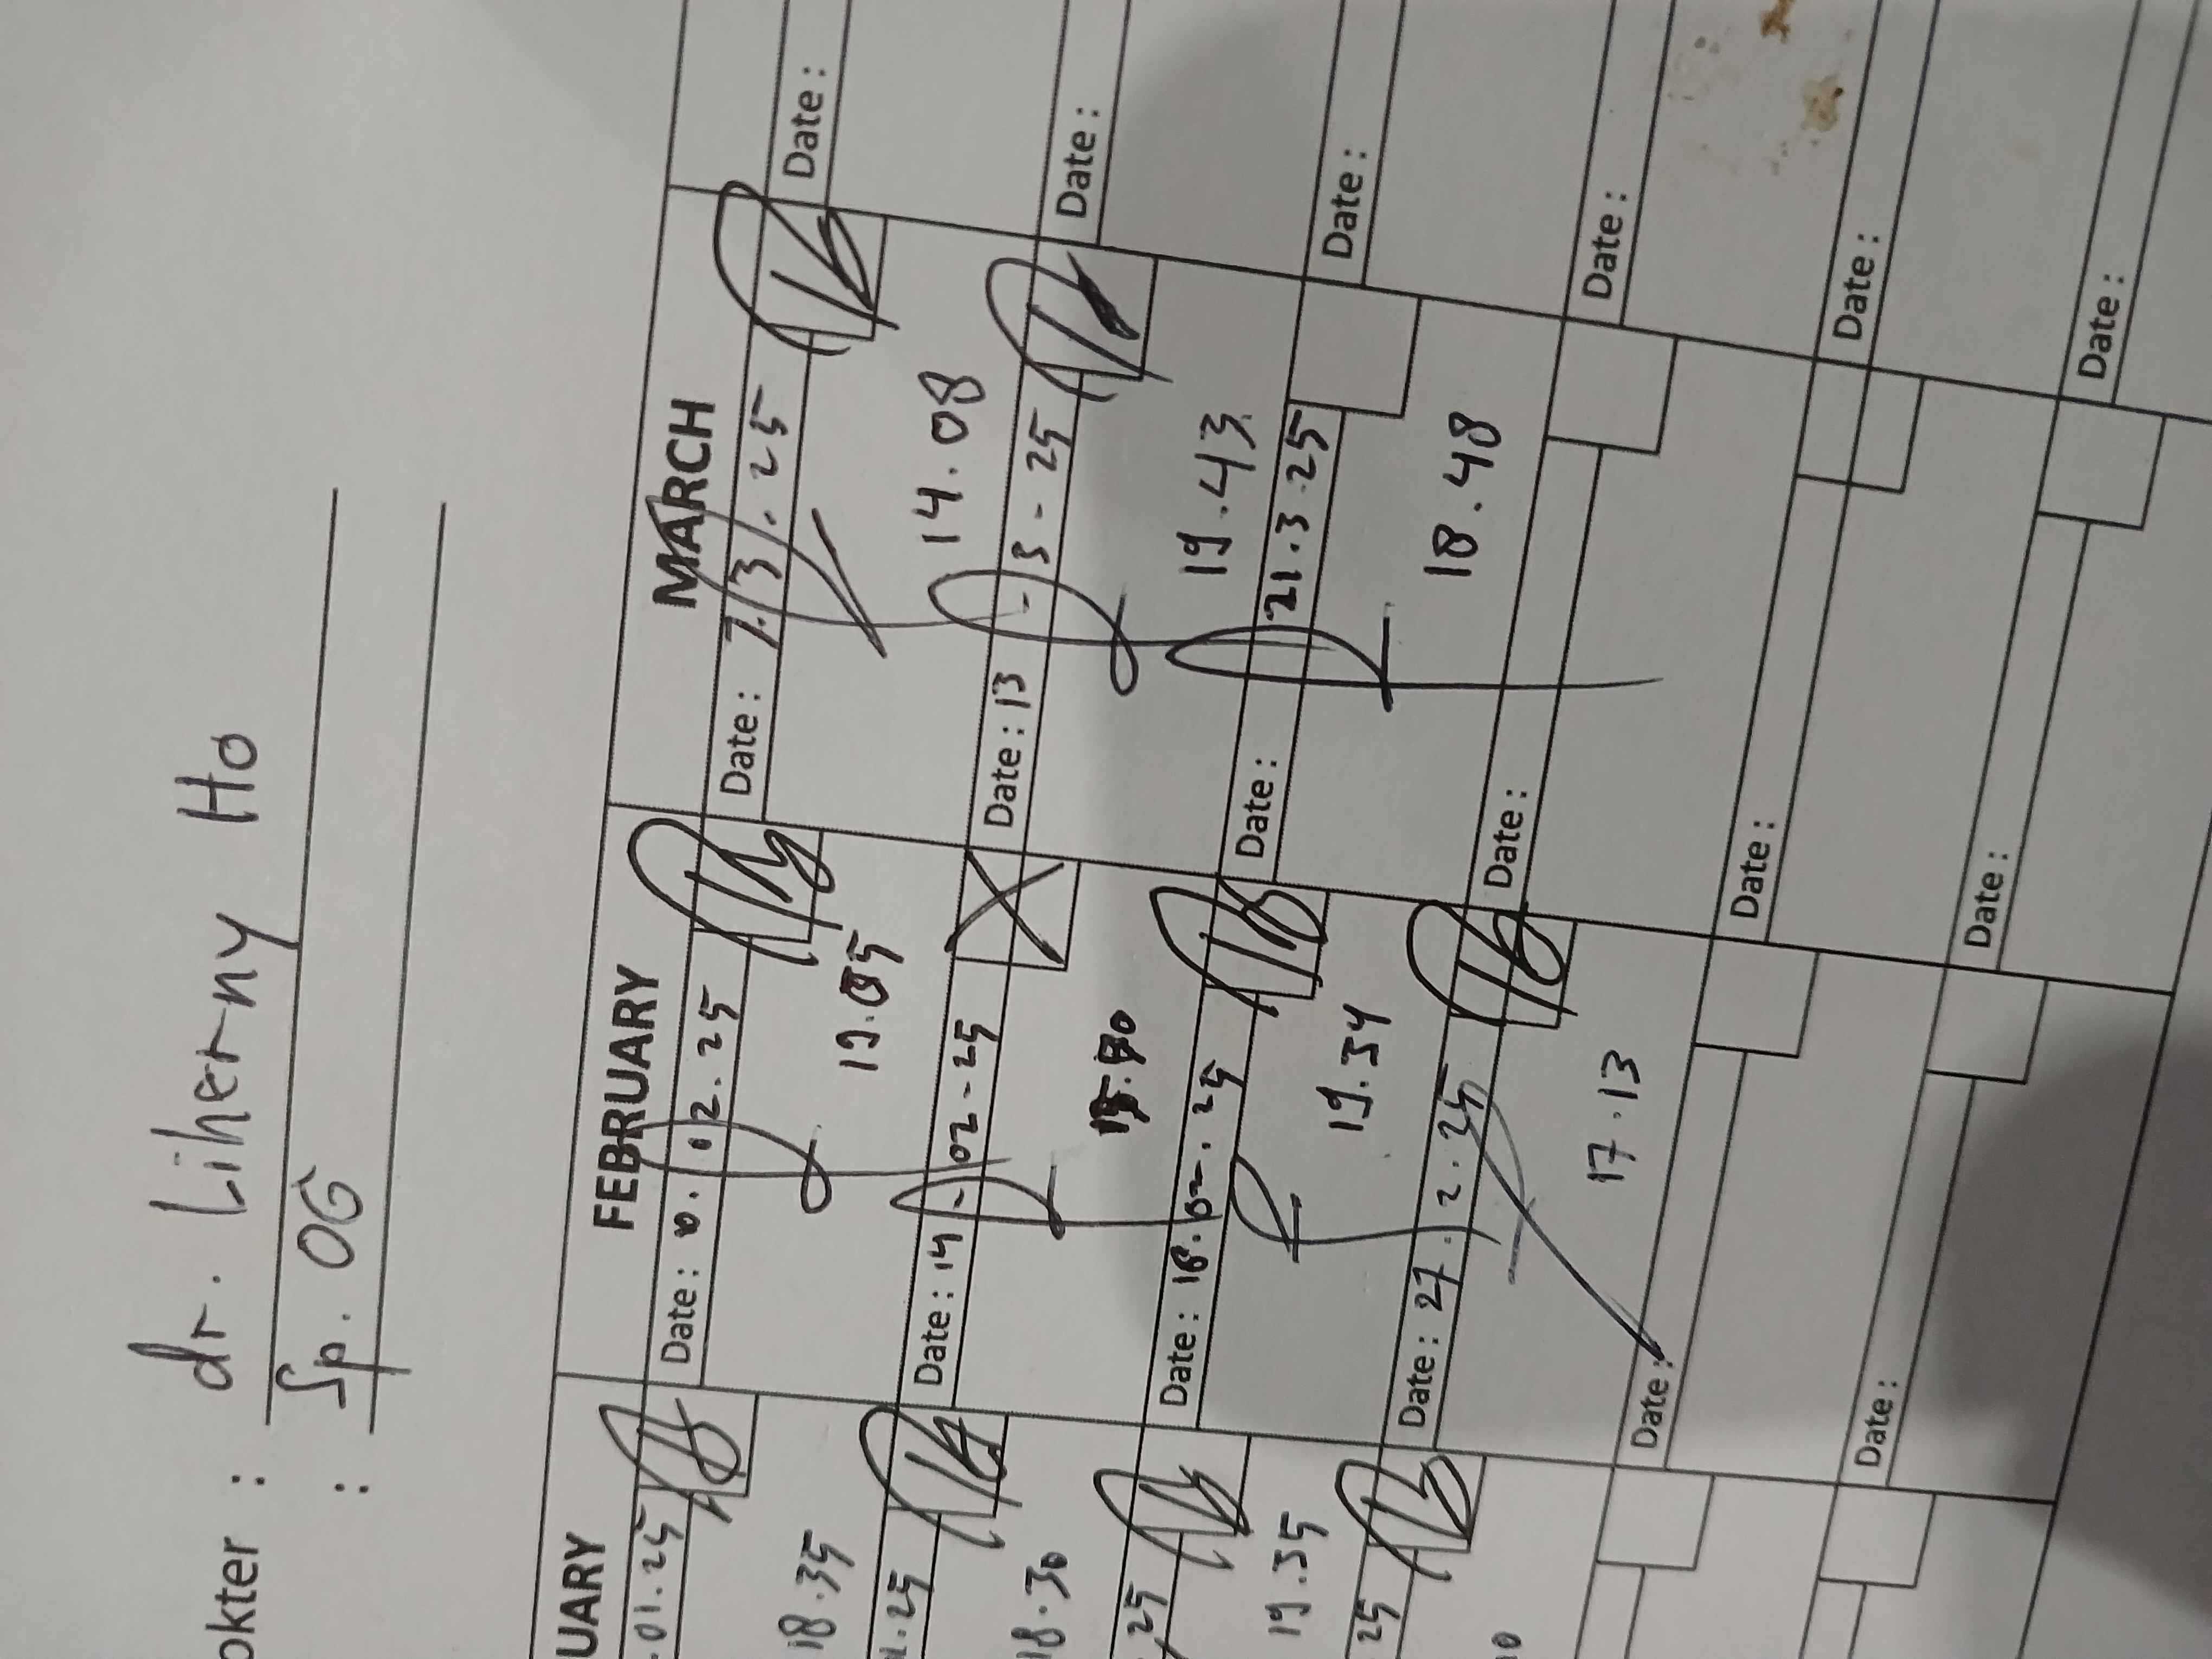 okter : dr. Liherny Ho
: Sp. OG
UARY FEBRUARY MARCH
.01.25 Date : 02.25 Date : 7.3.25 Date :
18.35 19.05 14.08
.25 Date : 14-02-25 Date : 13-3-25 Date :
18.30 19.43
25 Date : 18.02.25 Date : 21.3.25 Date :
19.35 19.34 18.48
25 Date : 27.2.25 Date : Date :
17.13
Date : Date : Date :
Date : Date : Date :